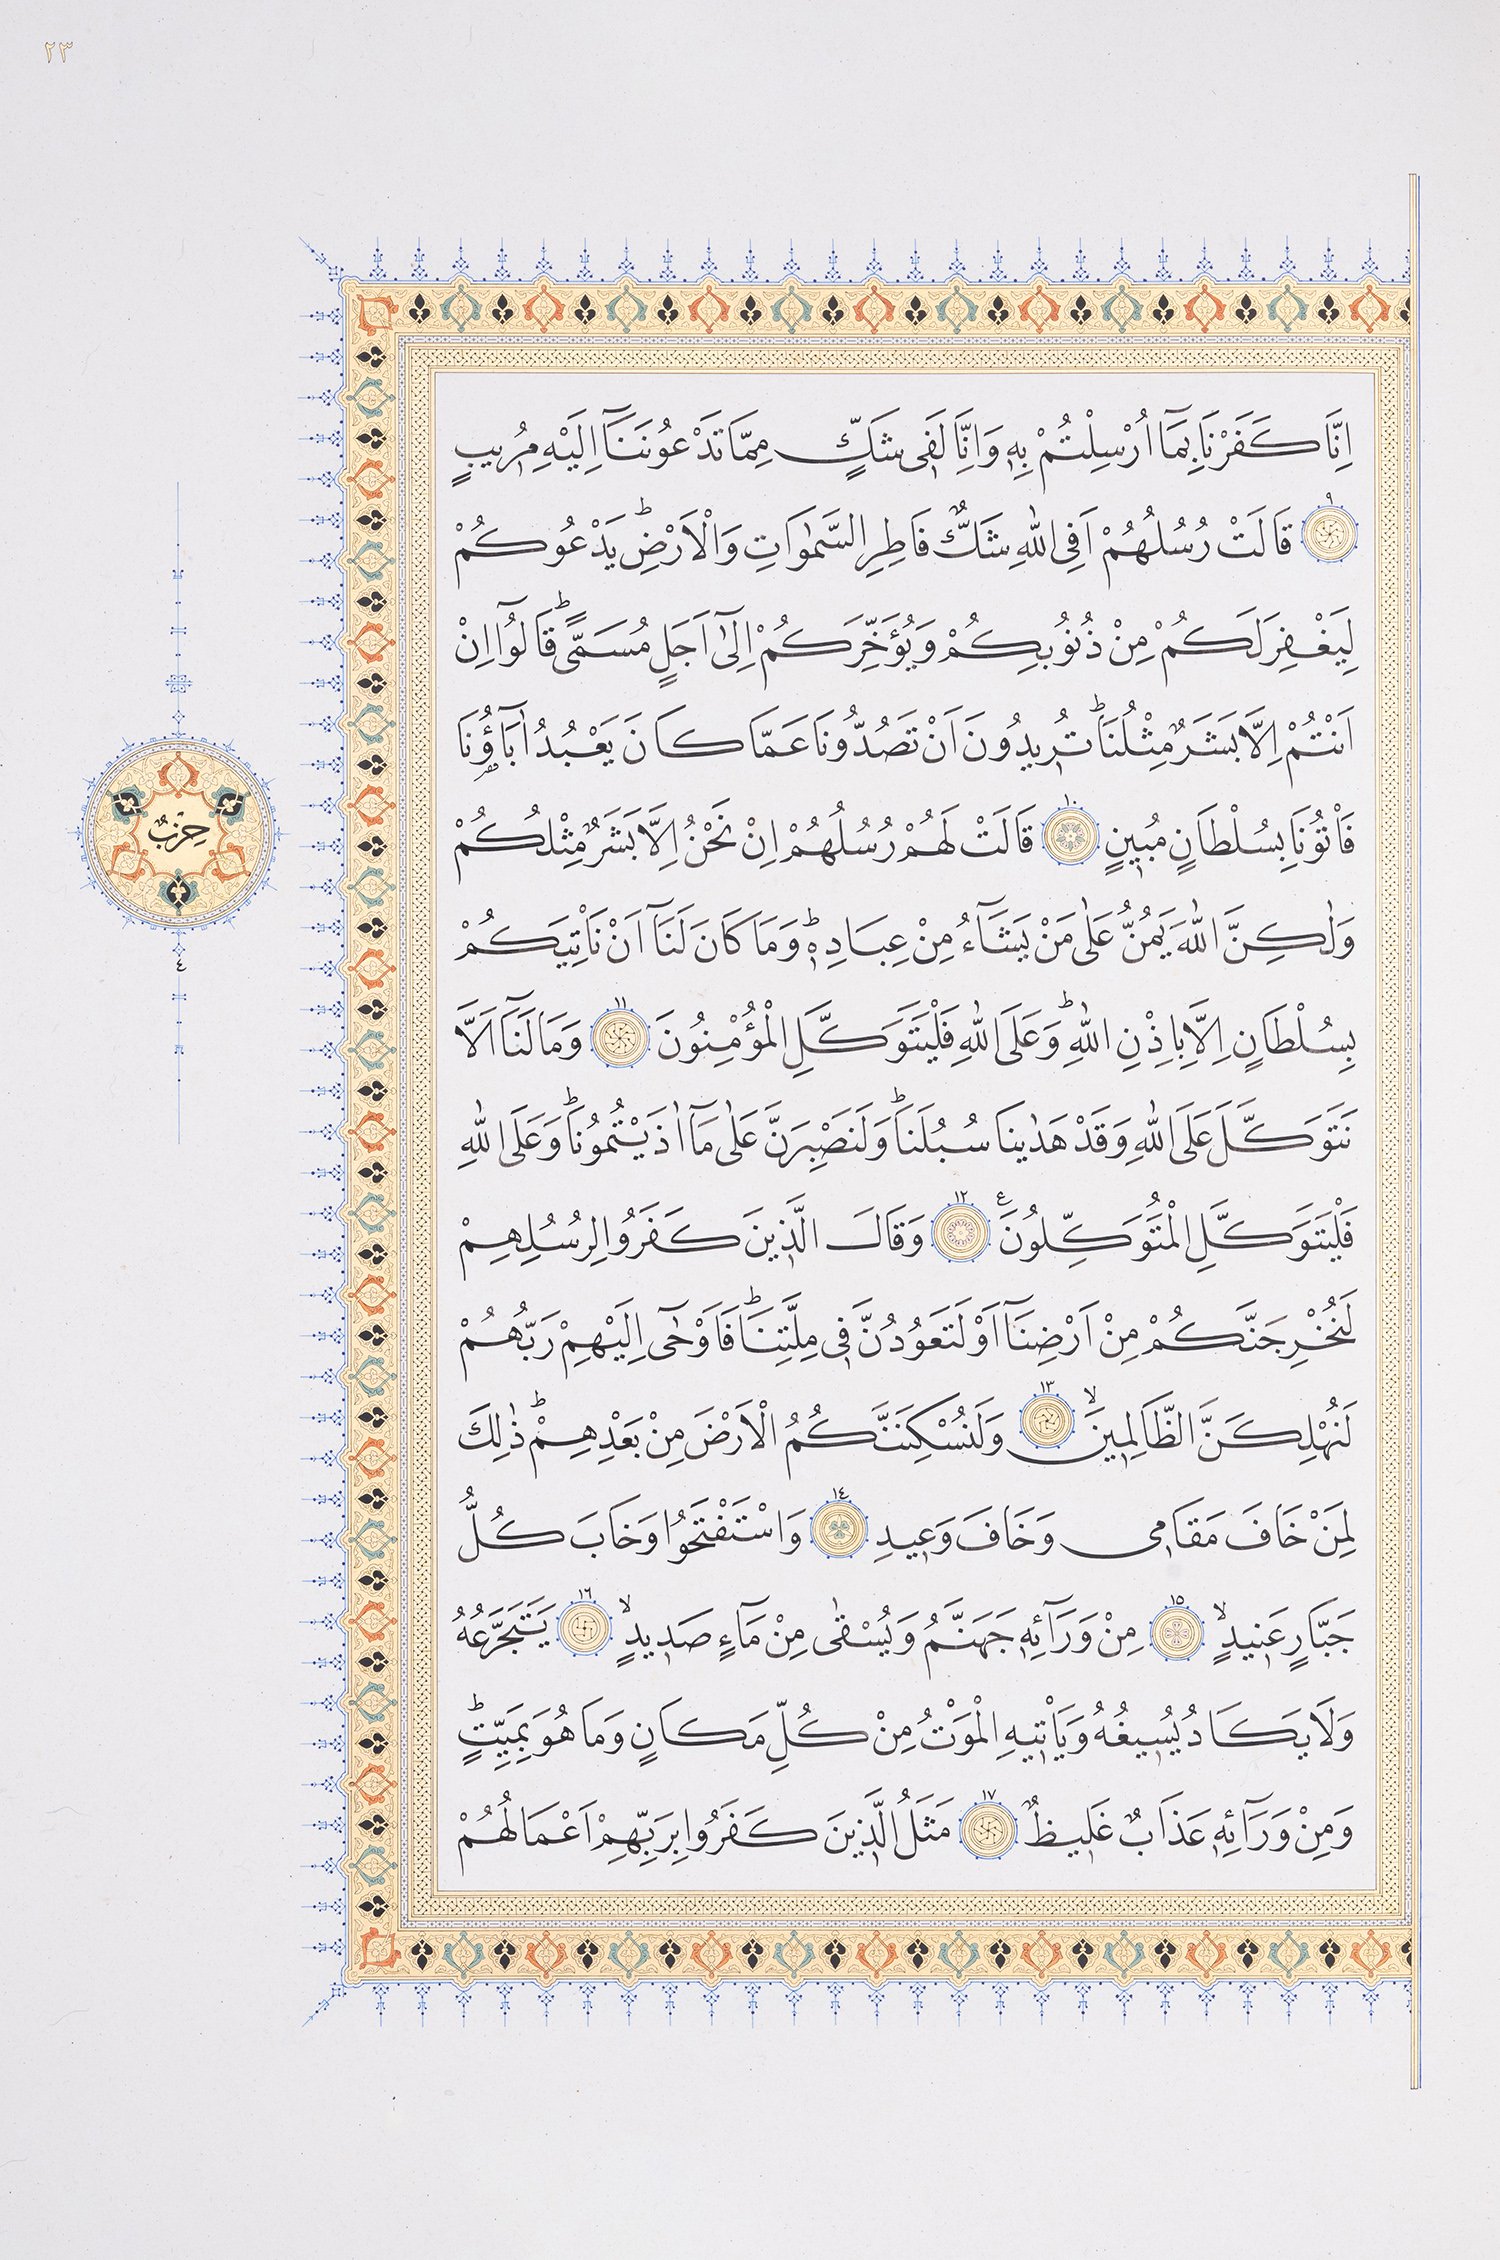 ٢٣
اِنَّا كَفَرْنَا بِمَٓا اُرْسِلْتُمْ بِه۪ وَاِنَّا لَف۪ى شَكٍّ مِمَّا تَدْعُونَنَٓا اِلَيْهِ مُر۪يبٍ
٩ قَالَتْ رُسُلُهُمْ اَفِى اللّٰهِ شَكٌّ فَاطِرِ السَّمٰوَاتِ وَالْاَرْضِۜ يَدْعُوكُمْ
لِيَغْفِرَ لَكُمْ مِنْ ذُنُوبِكُمْ وَيُؤَخِّرَكُمْ اِلٰٓى اَجَلٍ مُسَمًّىۜ قَالُٓوا اِنْ
اَنْتُمْ اِلَّا بَشَرٌ مِثْلُنَاۜ تُر۪يدُونَ اَنْ تَصُدُّونَا عَمَّا كَانَ يَعْبُدُ اٰبَٓاؤُ۬نَا
فَأْتُونَا بِسُلْطَانٍ مُب۪ينٍ ١٠ قَالَتْ لَهُمْ رُسُلُهُمْ اِنْ نَحْنُ اِلَّا بَشَرٌ مِثْلُكُمْ
وَلٰكِنَّ اللّٰهَ يَمُنُّ عَلٰى مَنْ يَشَٓاءُ مِنْ عِبَادِه۪ۜ وَمَا كَانَ لَنَٓا اَنْ نَأْتِيَكُمْ
بِسُلْطَانٍ اِلَّا بِاِذْنِ اللّٰهِۜ وَعَلَى اللّٰهِ فَلْيَتَوَكَّلِ الْمُؤْمِنُونَ ١١ وَمَا لَنَٓا اَلَّا
نَتَوَكَّلَ عَلَى اللّٰهِ وَقَدْ هَدٰينَا سُبُلَنَاۜ وَلَنَصْبِرَنَّ عَلٰى مَٓا اٰذَيْتُمُونَاۜ وَعَلَى اللّٰهِ
فَلْيَتَوَكَّلِ الْمُتَوَكِّلُونَ ع ١٢ وَقَالَ الَّذ۪ينَ كَفَرُوا لِرُسُلِهِمْ
لَنُخْرِجَنَّكُمْ مِنْ اَرْضِنَٓا اَوْ لَتَعُودُنَّ ف۪ى مِلَّتِنَاۜ فَاَوْحٰٓى اِلَيْهِمْ رَبُّهُمْ
لَنُهْلِكَنَّ الظَّالِم۪ينَۙ ١٣ وَلَنُسْكِنَنَّكُمُ الْاَرْضَ مِنْ بَعْدِهِمْۜ ذٰلِكَ
لِمَنْ خَافَ مَقَام۪ى وَخَافَ وَع۪يدِ ١٤ وَاسْتَفْتَحُوا وَخَابَ كُلُّ
جَبَّارٍ عَن۪يدٍۙ ١٥ مِنْ وَرَٓائِه۪ جَهَنَّمُ وَيُسْقٰى مِنْ مَٓاءٍ صَد۪يدٍۙ ١٦ يَتَجَرَّعُهُ
وَلَا يَكَادُ يُس۪يغُهُ وَيَأْت۪يهِ الْمَوْتُ مِنْ كُلِّ مَكَانٍ وَمَا هُوَ بِمَيِّتٍۜ
وَمِنْ وَرَٓائِه۪ عَذَابٌ غَل۪يظٌ ١٧ مَثَلُ الَّذ۪ينَ كَفَرُوا بِرَبِّهِمْ اَعْمَالُهُمْ
حِزْبٌ
٤